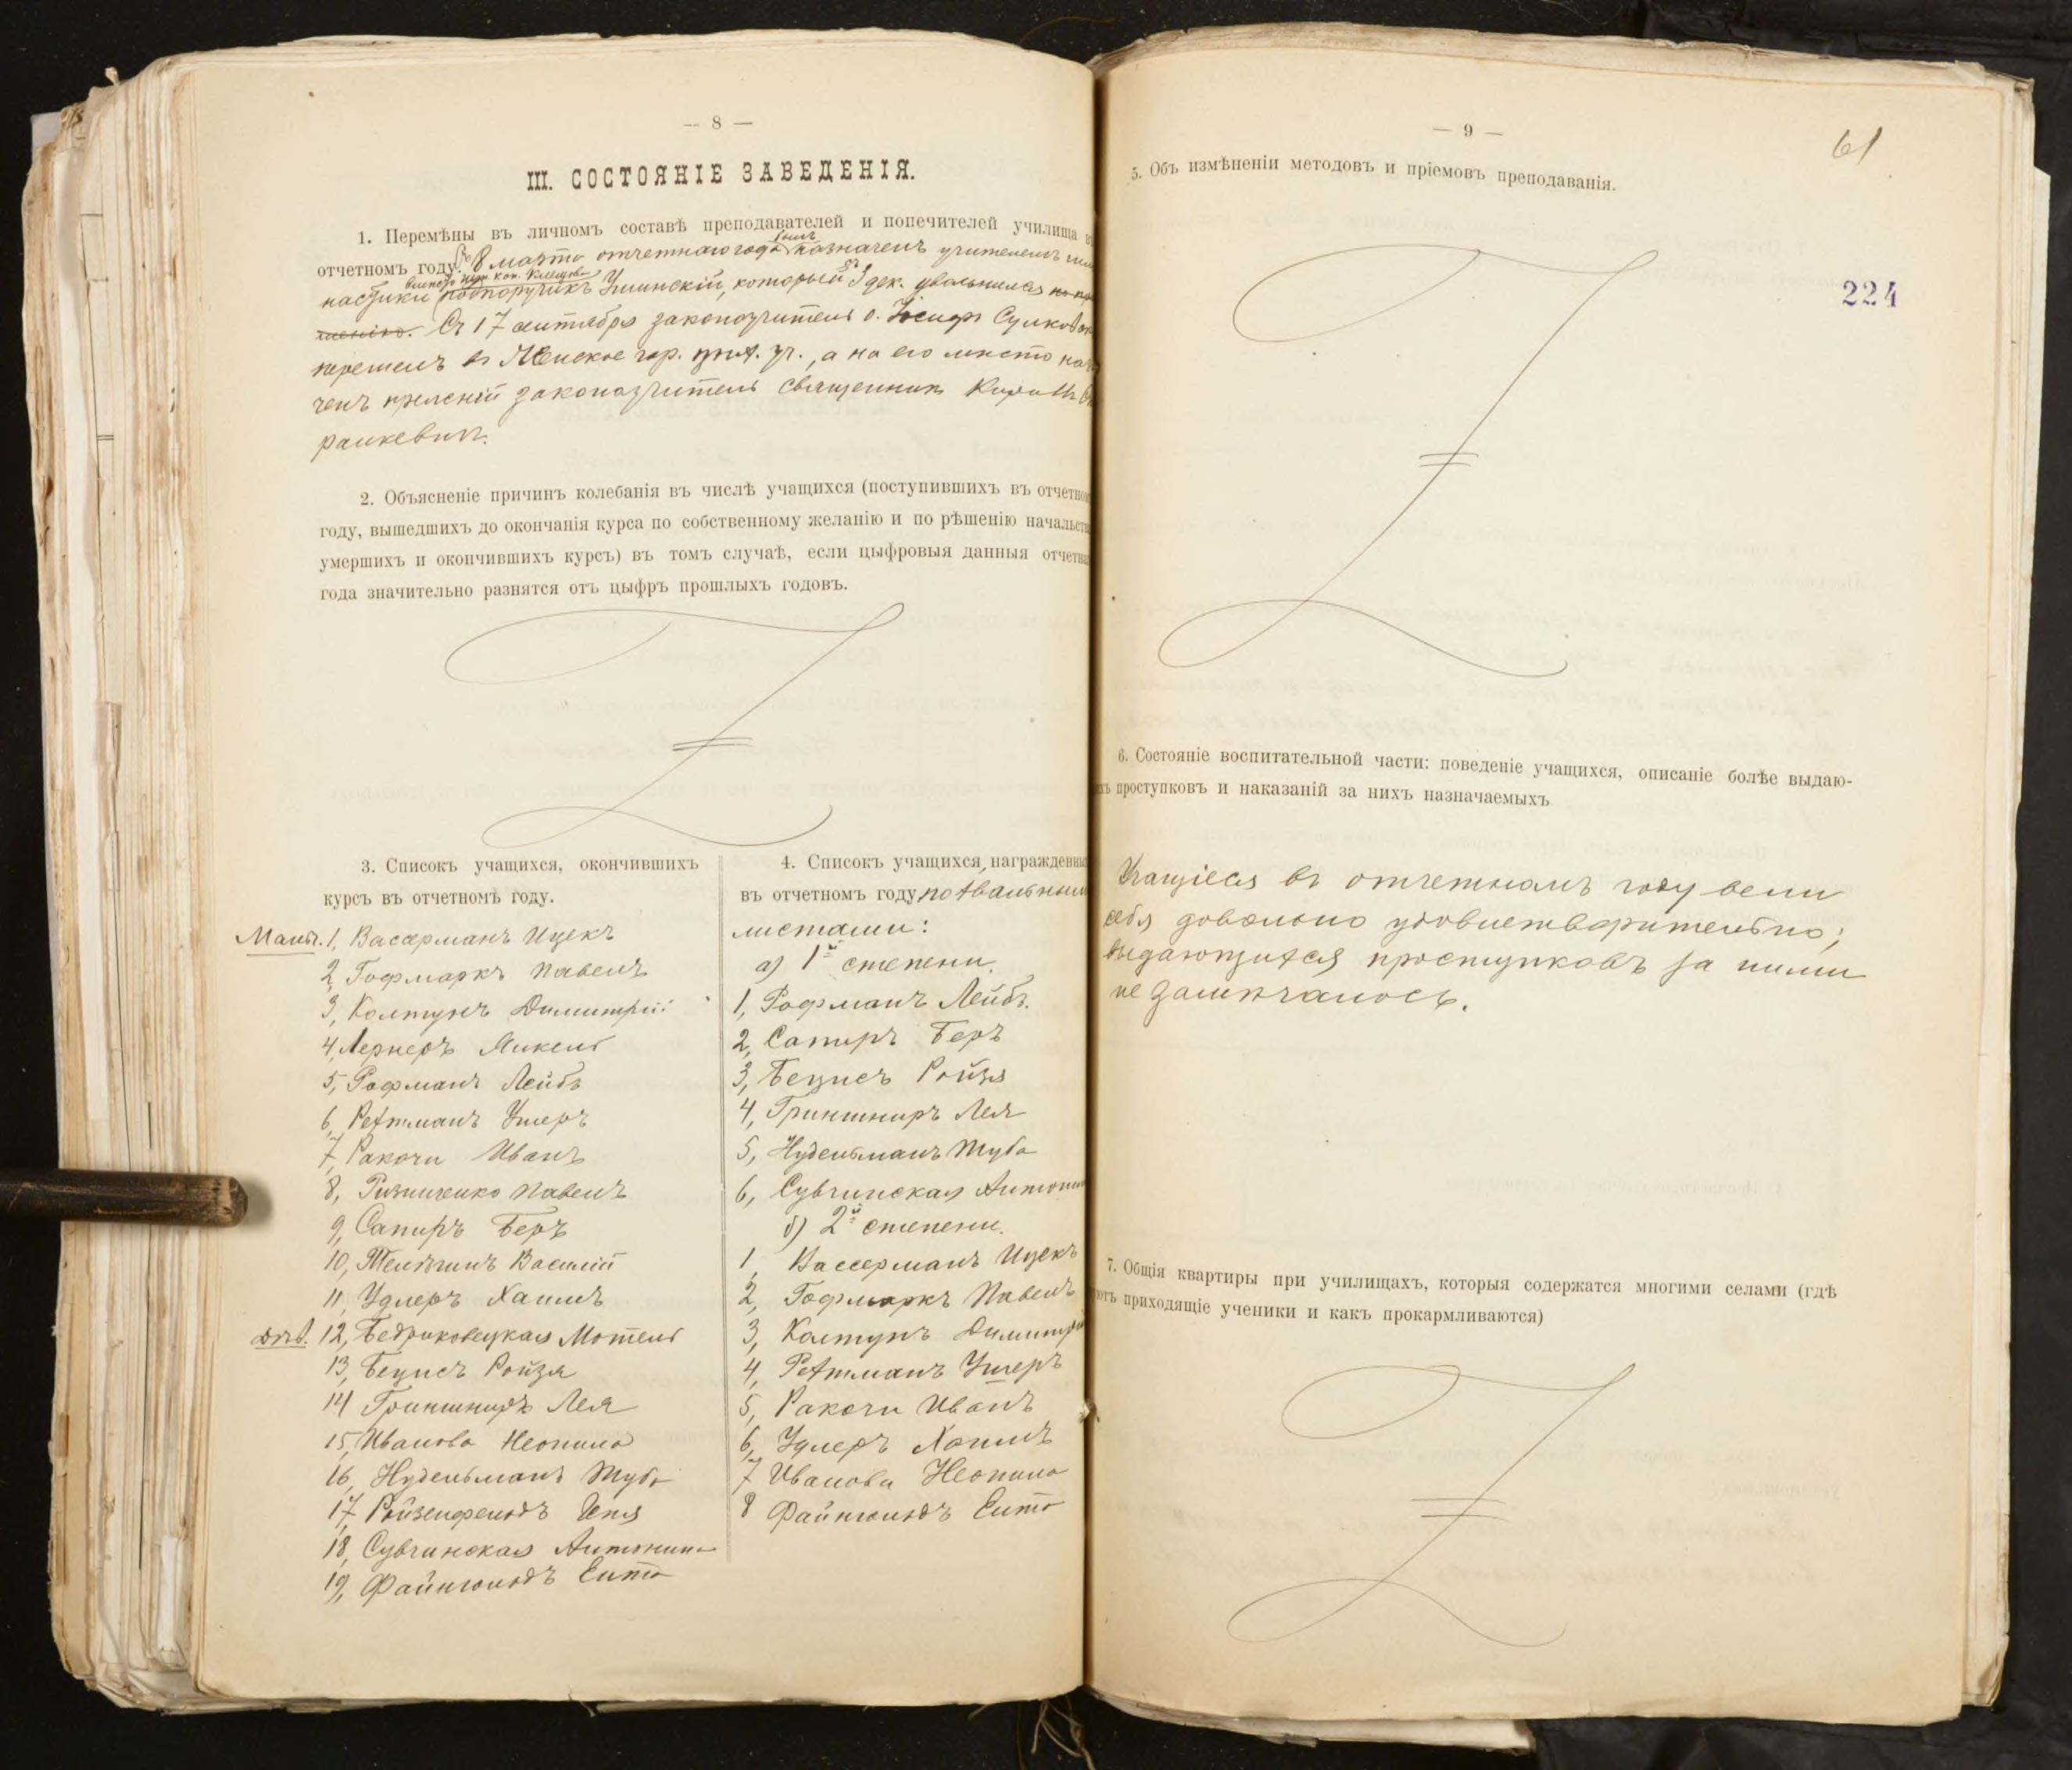 — 8 —
III. СОСТОЯНІЕ ЗАВЕДЕНІЯ.
1. Перемѣны въ личномъ составѣ преподавателей и попечителей училища
отчетномъ году. Съ 8 марта отчетнаго года былъ назначенъ учителемъ
настики вмѣсто шт. кап. подпоручикъ Ушинскій, который 9 дек. уволился
Съ 17 сентября законоучитель о. Іосифъ
перешелъ въ гор. уч., а на его мѣсто
ченъ законоучитель священникъ
ранкевичъ.
2. Объясненіе причинъ колебанія въ числѣ учащихся (поступившихъ въ отчетно
году, вышедшихъ до окончанія курса по собственному желанію и по рѣшенію начальст
умершихъ и окончившихъ курсъ) въ томъ случаѣ, если цыфровыя данныя отчетна
года значительно разнятся отъ цыфръ прошлыхъ годовъ.
3. Списокъ учащихся, окончившихъ
курсъ въ отчетномъ году.
Мальч. 1, Вассерманъ Ицекъ
2, Гофмаркъ Павелъ
3, Колтунъ Димитрій
4, Лернеръ Янкель
5, Рофманъ Лейбъ
6, Рехтманъ Ушеръ
7, Ракочи Иванъ
8, Ризниченко Павелъ
9, Сапиръ Беръ
10, Телѣгинъ Василій
11, Удлеръ Хаимъ
Дѣв. 12, Бедриковецкая Мотель
13, Бецисъ Ройзя
14 Гриншпиръ Лея
15, Иванова Неонила
16, Нудельманъ Туба
17, Ройзенфельдъ Геня
18, Сувчинская Антонина
19, Файнгольдъ Ента
4. Списокъ учащихся, награжденны
въ отчетномъ году похвальными
листами:
а) 1й степени.
1, Рофманъ Лейбъ.
2, Сапиръ Беръ
3, Бецисъ Ройзя
4, Гриншпиръ Лея
5, Нудельманъ Туба
6, Сувчинская Антони
б) 2й степени.
1, Вассерманъ Ицекъ
2, Гофмаркъ Павелъ
3, Колтунъ Димитрій
4, Рехтманъ Ушеръ
5, Ракочи Иванъ
6, Удлеръ Хаимъ
7 Иванова Неонила
8 Файнгольдъ Ента
— 9 —
61
5. Объ измѣненіи методовъ и пріемовъ преподаванія.
224
6. Состояніе воспитательной части: поведеніе учащихся, описаніе болѣе выдаю-
хъ проступковъ и наказаній за нихъ назначаемыхъ
Учащіеся въ отчетномъ году вели
себя довольно удовлетворительно;
выдающихся проступковъ за ними
не замѣчалось.
7. Общія квартиры при училищахъ, которыя содержатся многими селами (гдѣ
ютъ приходящіе ученики и какъ прокармливаются)